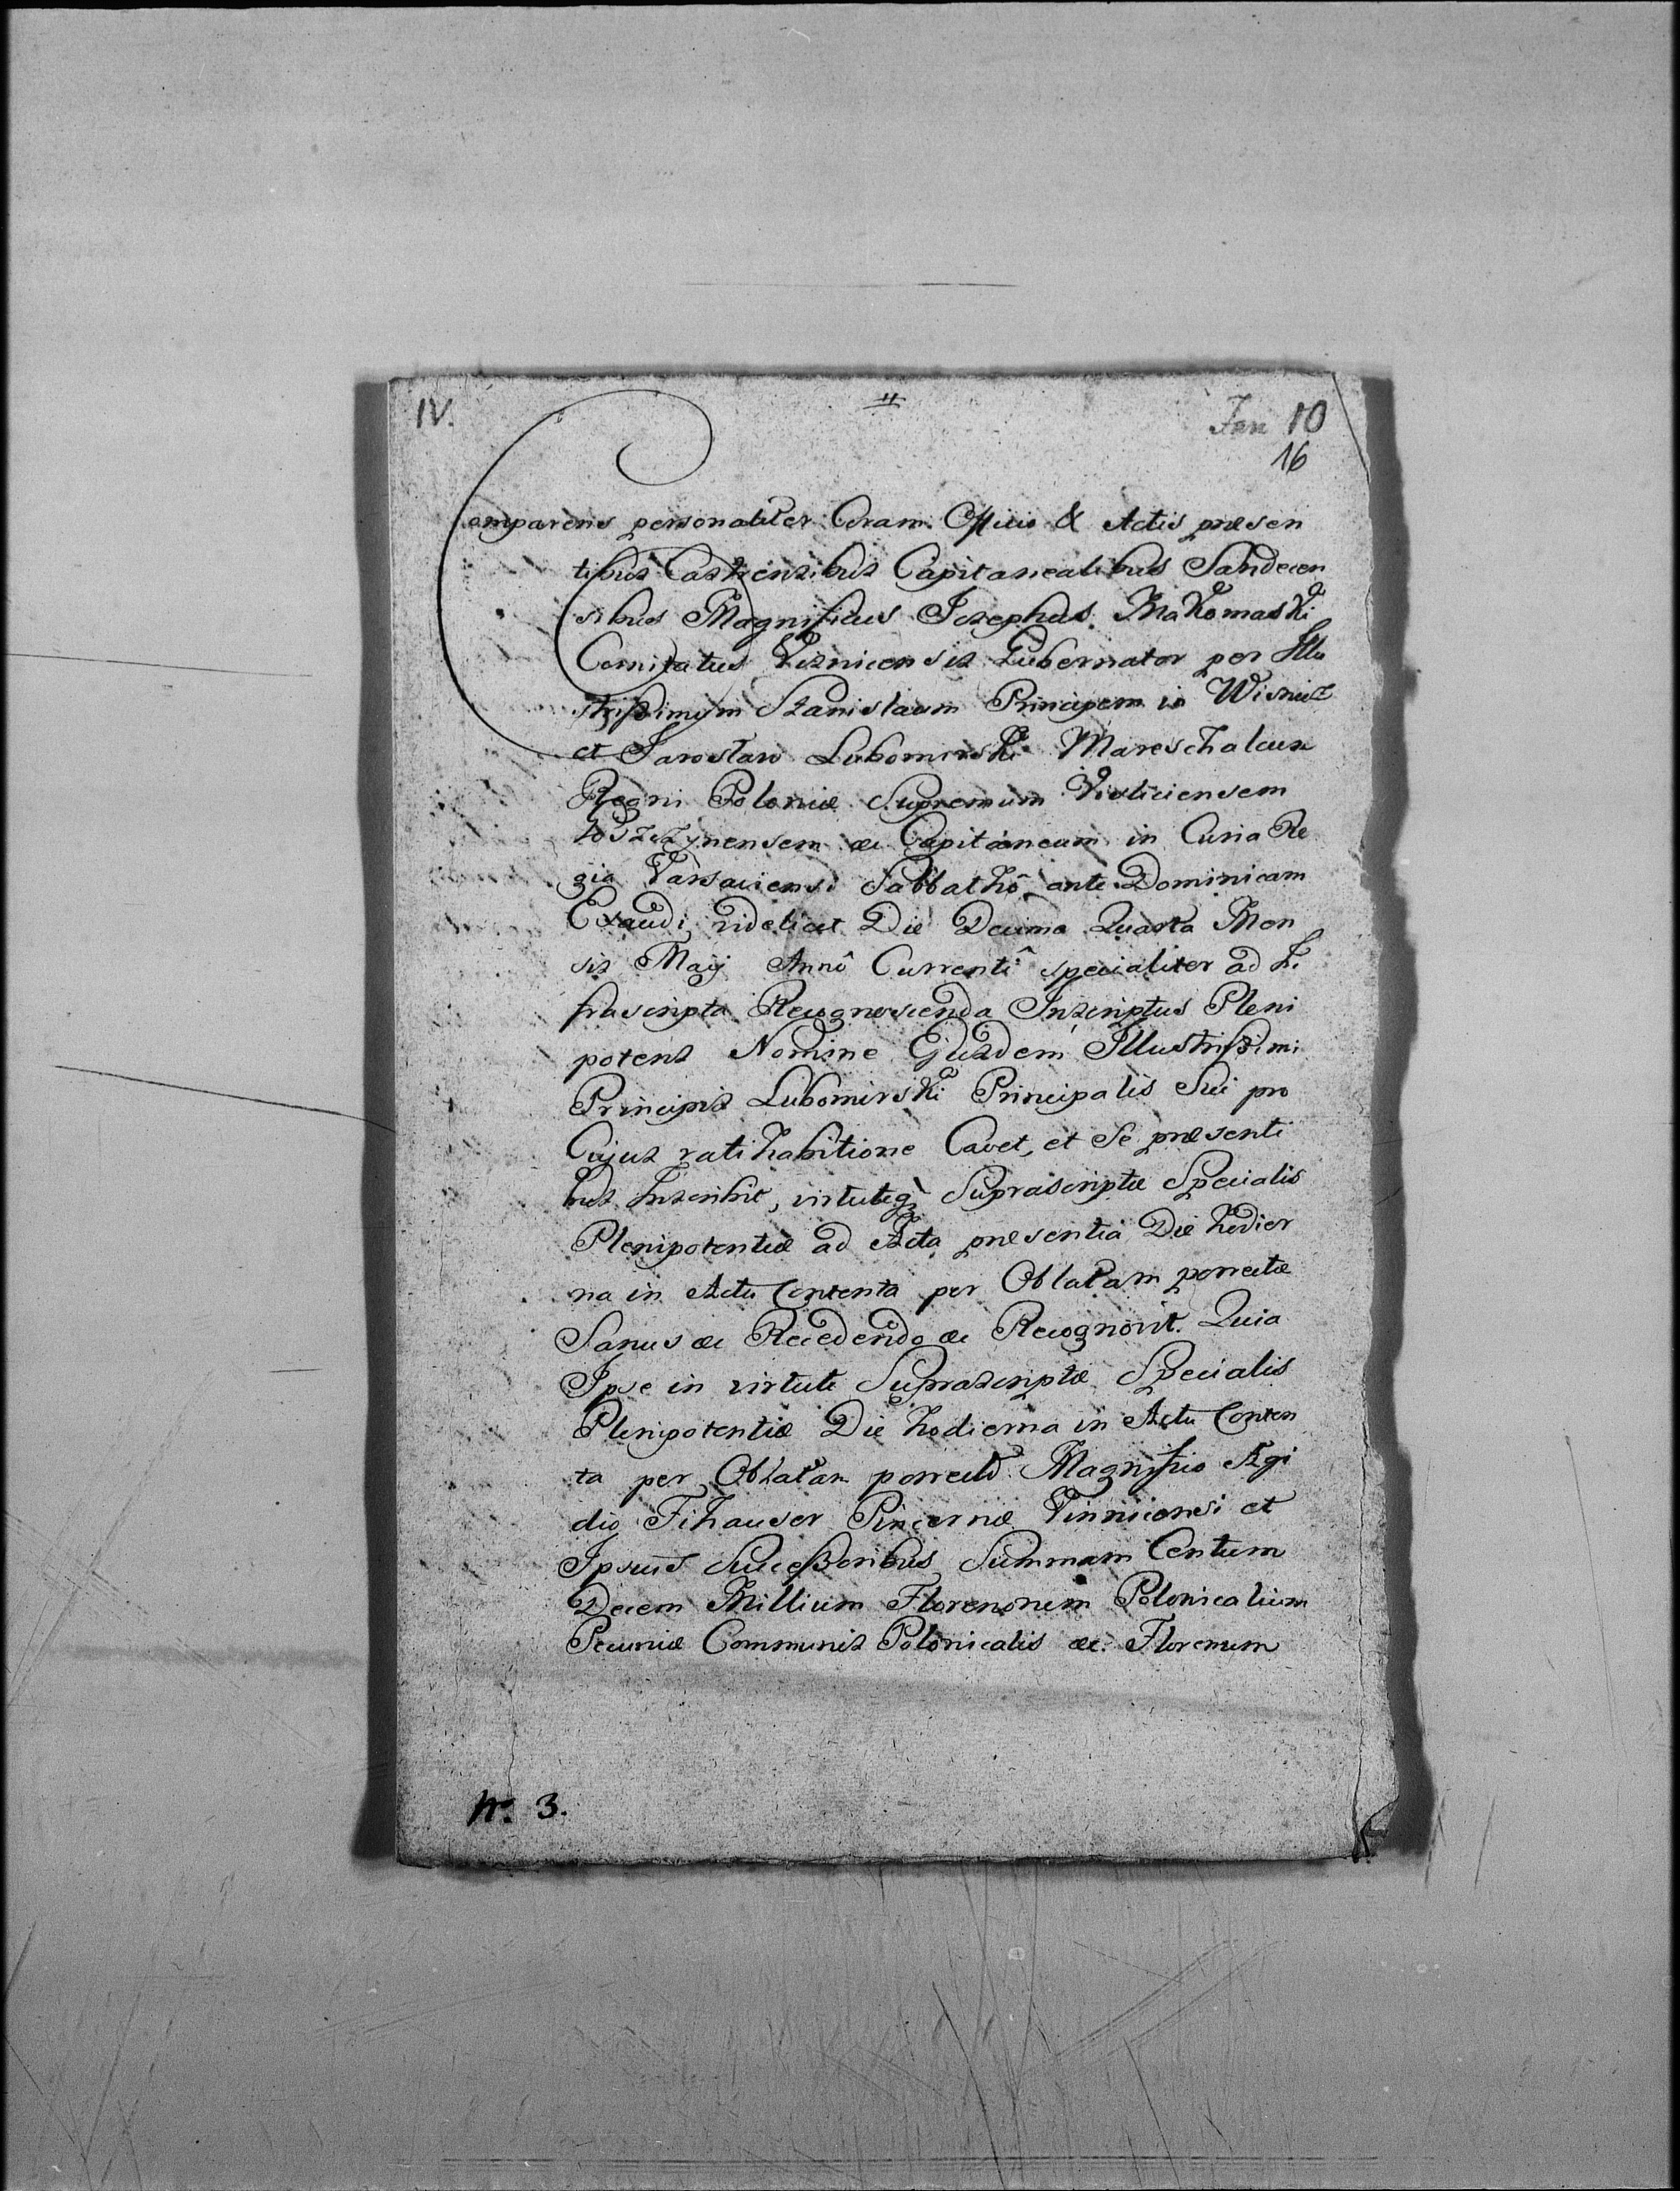 IV.
Fan 10
16
Comparens personaliter Coram Officio & Actis præsen
tibus Castrensibus Capitanealibus Sandecen
sibus Magnificus Josephus Makomaski
Comitatus Visnicensis Gubernator per Illu
strissimum Stanislaum Principem in Wisnicz
et Jaroslaw Lubomirski Mareschalcum
Regni Poloniæ Supremum Visliciensem
ac Capitaneum in Curia Re
gia Varsaviensi Sabbathô ante Dominicam
Exaudi, videlicet Die Decima Quarta Men
sis Maij Annô Currentî specialiter ad In
frascripta Recognoscenda Inscriptus Pleni
potens Nomine Ejusdem Illustrissimi
Principis Lubomirski Principalis Sui pro
Cujus ratihabitione Cavet, et Se præsenti
bus Inscribit, virtuteq Suprascriptæ Specialis
Plenipotentiæ ad Acta præsentia Die hodier
na in Actu Contenta per Oblatam porrectæ
Sanus ac Recedendo ac Recognovit. Quia
Ipse in virtute Suprascriptæ Specialis
Plenipotentiæ Die hodierna in Actu Conten
ta per Oblatam porrectæ Magnifico Ægi
dio Fihauser Pincernæ Vinnicensi et
Ipsius Successoribus Summam Centum
Decem Millium Florenorum Polonicalium
Pecuniæ Communis Polonicalis ac Florenum
No. 3.